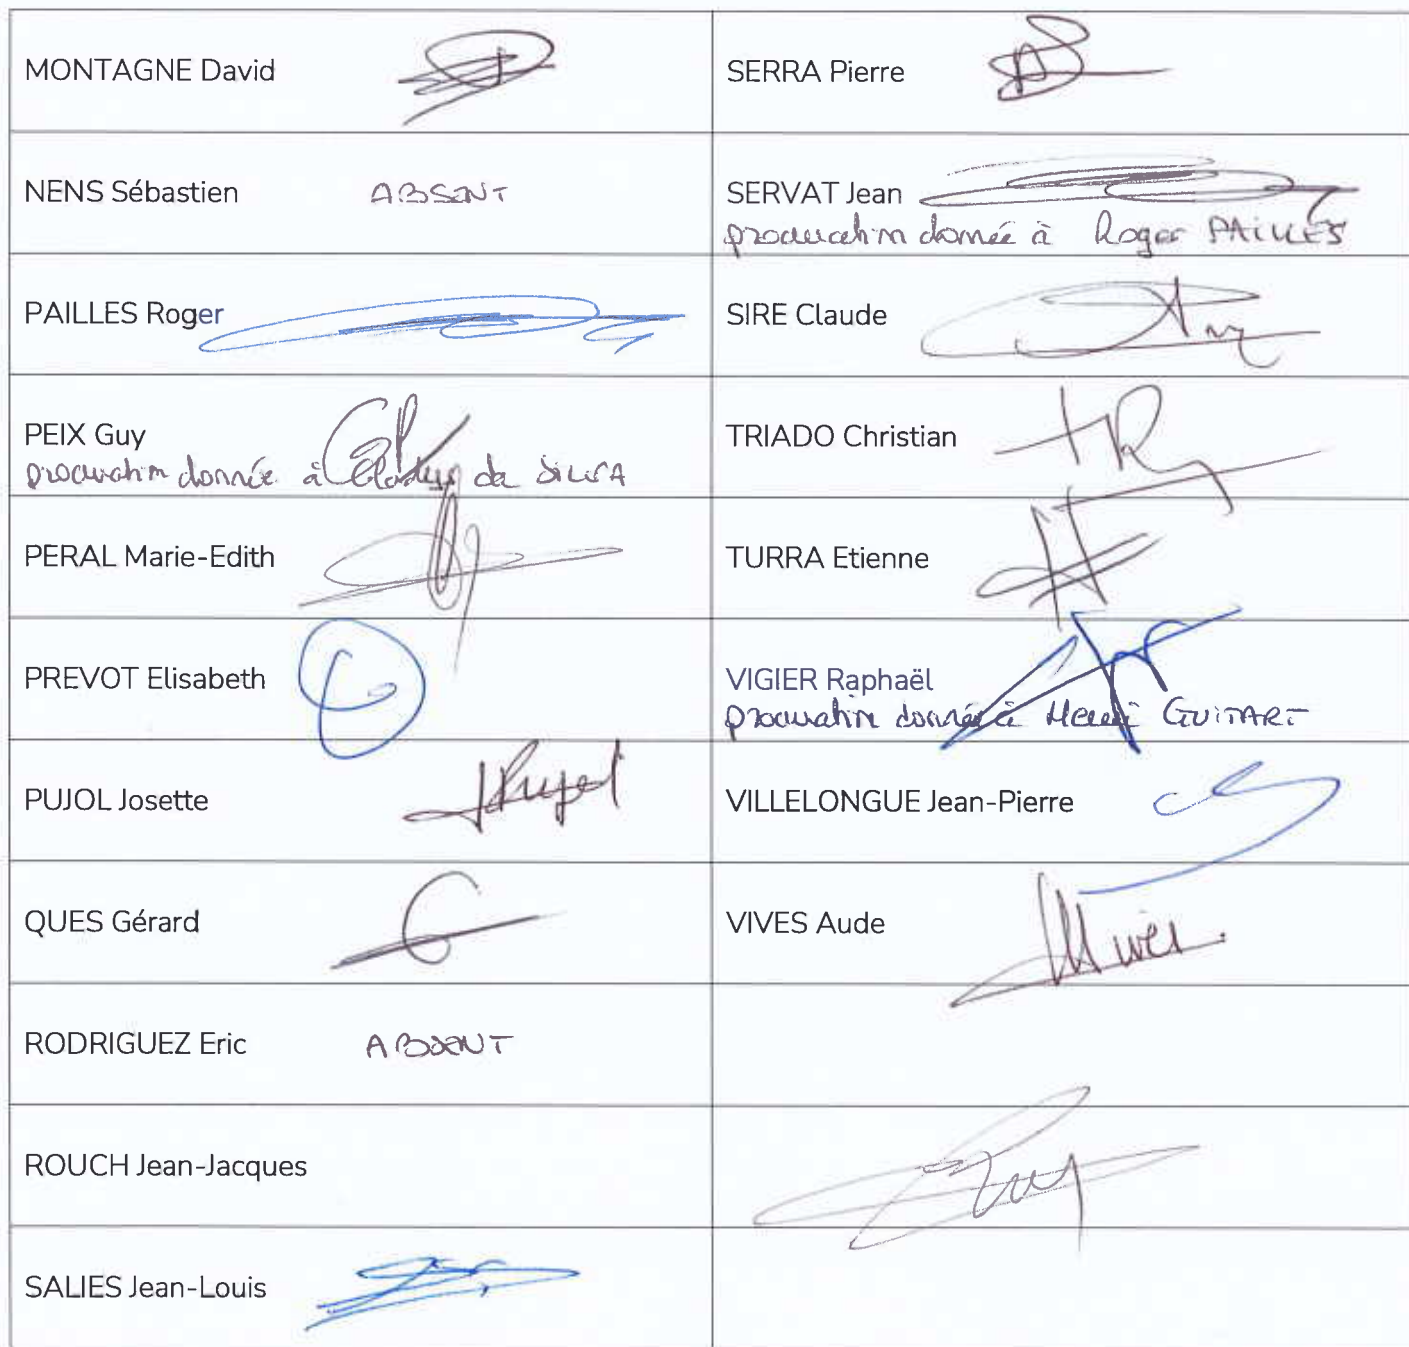 MONTAGNE David
SERRA Pierre
NENS Sébastien ABSENT
SERVAT Jean
procuration donnée à Roger PAILLES
PAILLES Roger
SIRE Claude
PEIX Guy
procuration donnée à Gladys da SILVA
TRIADO Christian
PERAL Marie-Edith
TURRA Etienne
PREVOT Elisabeth
VIGIER Raphaël
procuration donnée à Henri GUITART
PUJOL Josette JPujol
VILLELONGUE Jean-Pierre
QUES Gérard
VIVES Aude
RODRIGUEZ Eric ABSENT
ROUCH Jean-Jacques
SALIES Jean-Louis